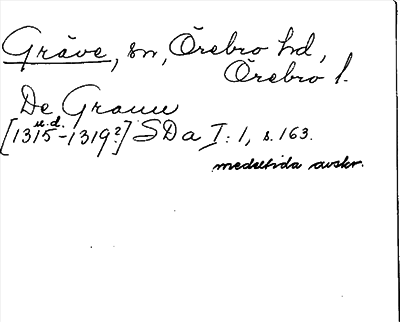 Gräve, sn, Örebro hd,
Örebro l.
De Grauu
u.d.
[1315-1319?] SD a I: 1, s. 163.
medeltida avskr.